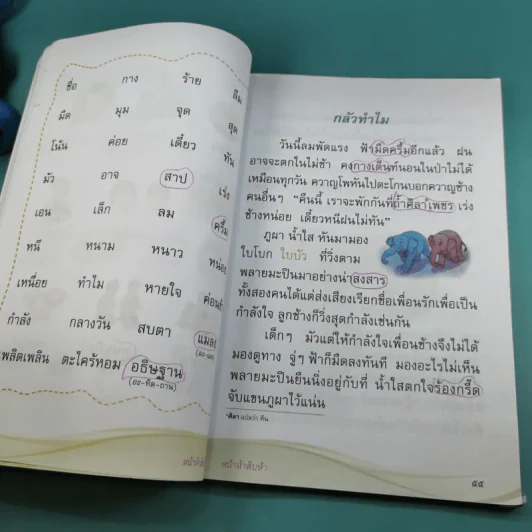 ชื่อ กาง ร้าย ลืม
มืด มุม จุด สุด
โน้น ค่อย เดี๋ยว ทัน
มัว อาจ สาป เร่ง
เอน เล็ก ลม
หนี หนาม หนาว
เหนื่อย ทำไม หายใจ
กำลัง กลางวัน สบตา
เพลิดเพลิน ตะไคร้หอม อธิษฐาน
(อะ-ทิด-ถาน)
กลัวทำไม
วันนี้ลมพัดแรง ฟ้ามืดครึ้มอีกแล้ว ฝน
อาจจะตกในไม่ช้า คงกางเต็นท์นอนในป่าไม่ได้
เหมือนทุกวัน ควาญโพทันไปตะโกนบอกควาญช้าง
คนอื่นๆ "คืนนี้ เราจะพักกันที่ถ้ำศิลาเพชร เร่ง
ช้างหน่อย เดี๋ยวหนีฝนไม่ทัน"
ภูผา น้ำใส หันมามอง
ใบโบก ใบบัว ที่วิ่งตาม
พลายมะปินมาอย่างน่าสงสาร
ทั้งสองคนได้แต่ส่งเสียงเรียกชื่อเพื่อนรักเพื่อเป็น
กำลังใจ ลูกช้างก็วิ่งสุดกำลังเช่นกัน
เด็กๆ มัวแต่ให้กำลังใจเพื่อนช้างจึงไม่ได้
มองดูทาง จู่ๆ ฟ้าก็มืดลงทันที มองอะไรไม่เห็น
พลายมะปินยืนนิ่งอยู่กับที่ น้ำใสตกใจร้องกรี๊ด
จับแขนภูผาไว้แน่น
ศิลา แปลว่า หิน
หน้าห้าสิบห้า
๕๕